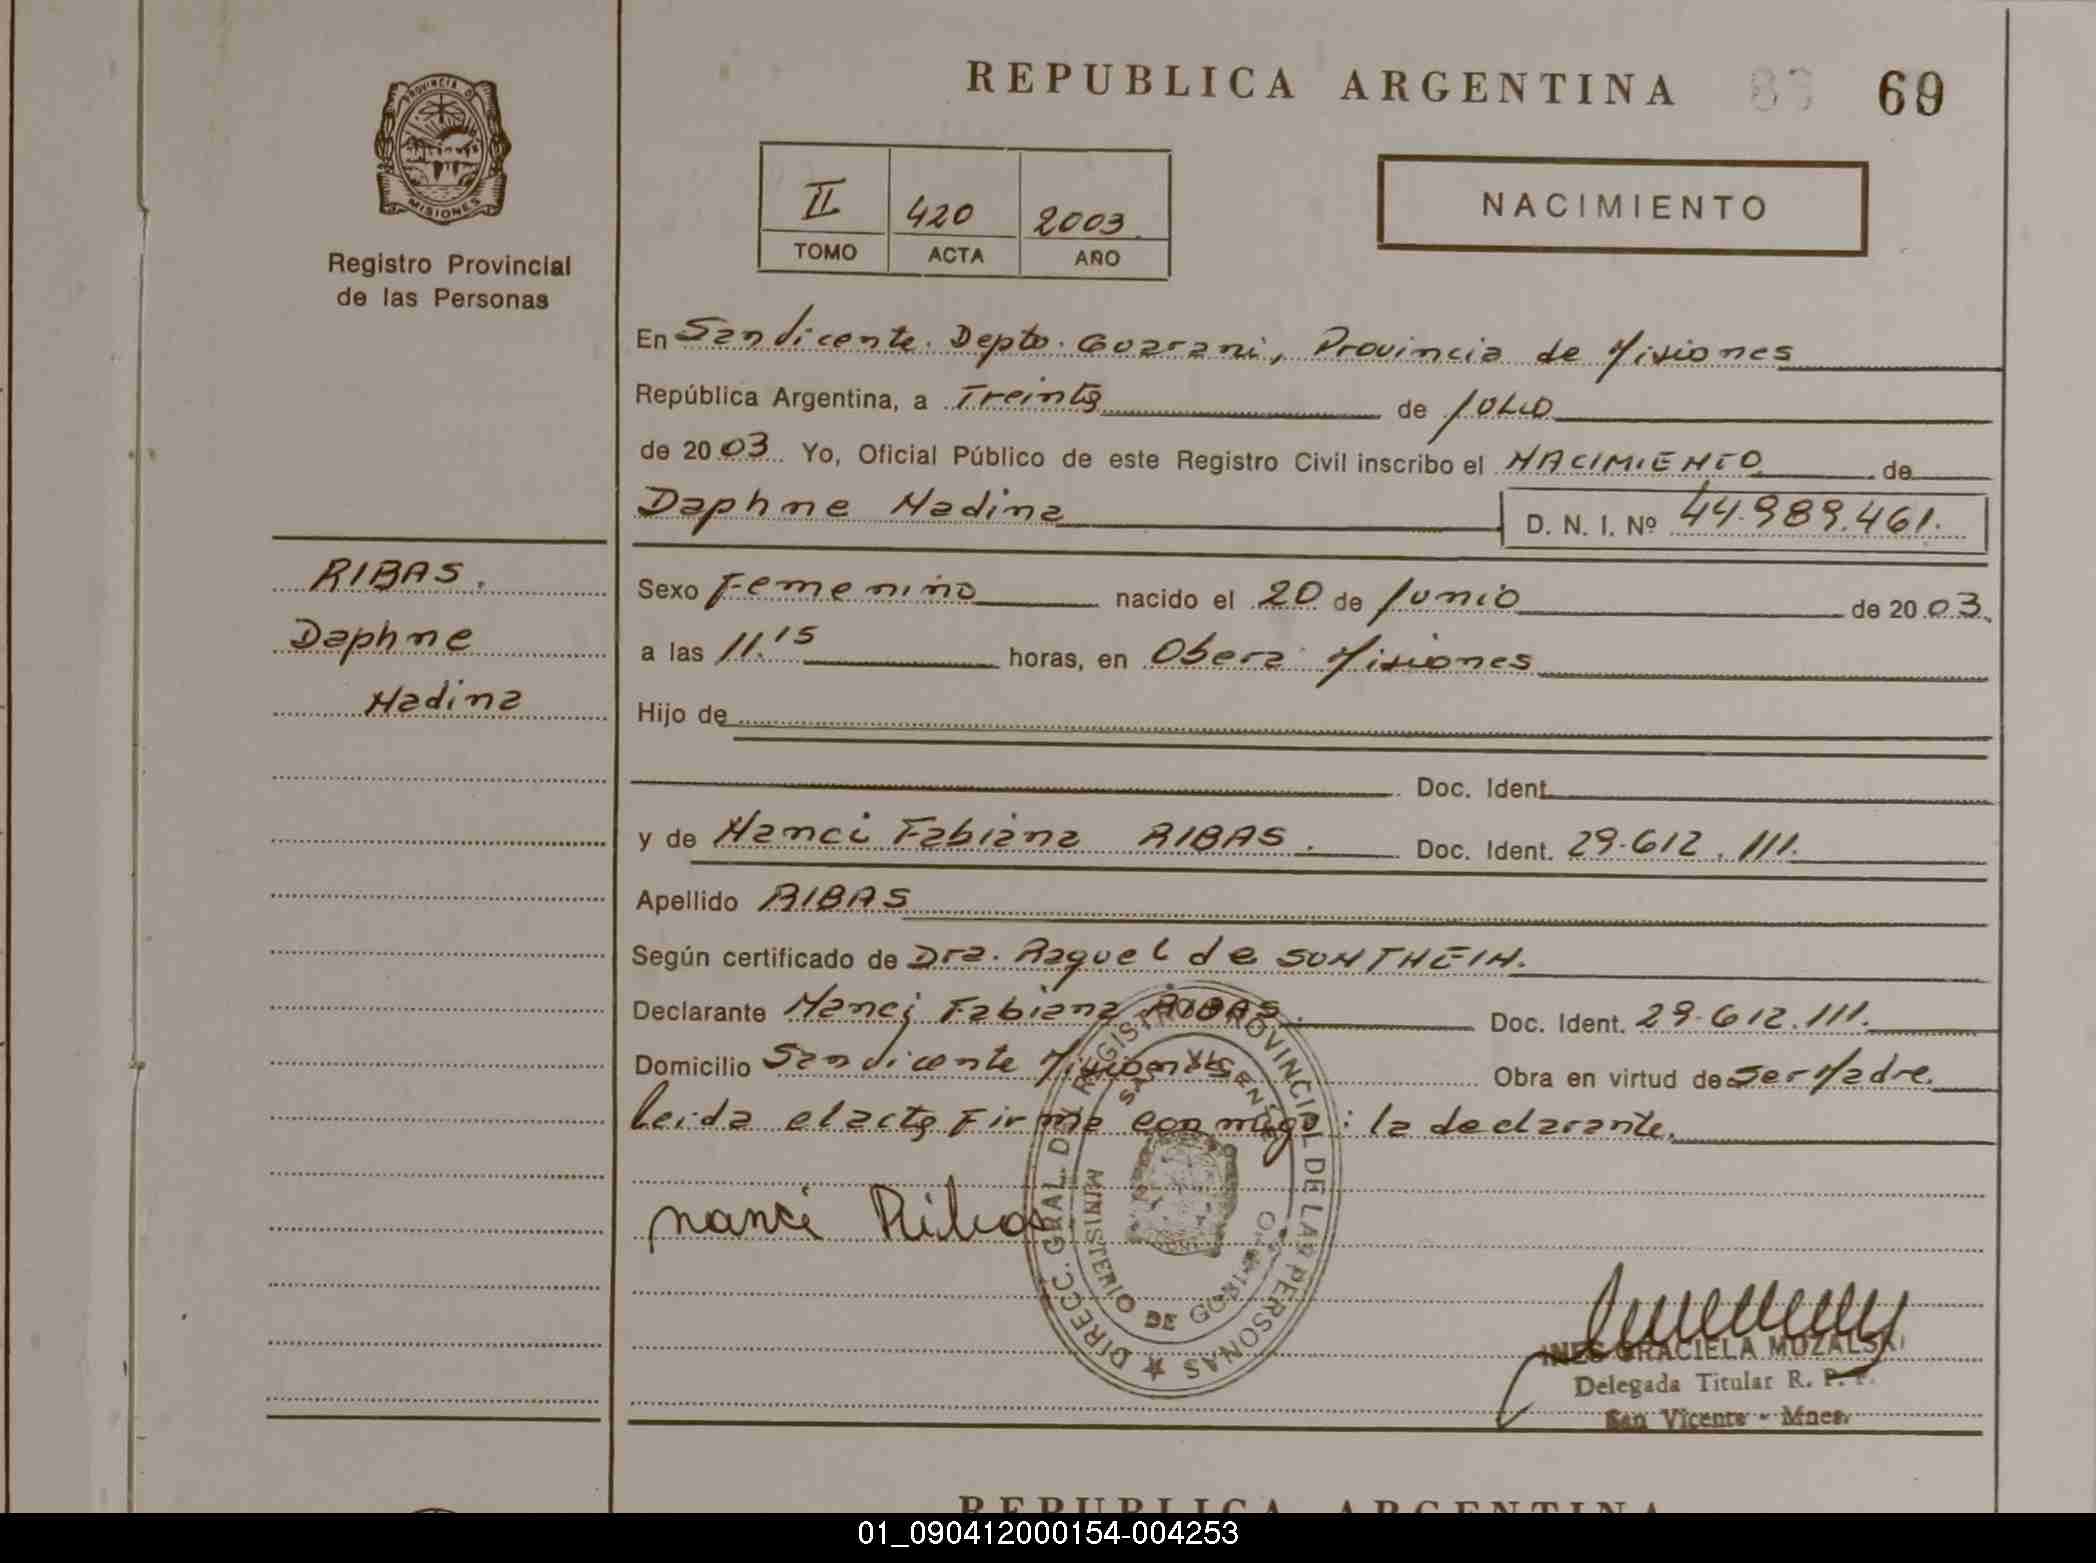 REPUBLICA ARGENTINA 69
PROVINCIA DE
MISIONES
Registro Provincial
de las Personas
II 420 2003
TOMO ACTA AÑO
NACIMIENTO
En San Vicente. Depto. Guarani, Provincia de Misiones
República Argentina, a Treinta de Julio
de 2003 Yo, Oficial Público de este Registro Civil inscribo el NACIMIENTO de
Daphne Nadina D. N. I. Nº 44.989.461.
RIBAS.
Daphne
Nadina
Sexo Femenino nacido el 20 de Junio de 2003.
a las 11.15 horas, en Obera Misiones
Hijo de
Doc. Ident.
y de Nanci Fabiana RIBAS. Doc. Ident. 29.612.111.
Apellido RIBAS
Según certificado de Dra. Raquel de SONTHEIN.
Declarante Nanci Fabiana RIBAS. Doc. Ident. 29.612.111.
Domicilio San Vicente Misiones Obra en virtud de ser Madre.
Leida el acta Firma conmigo: la declarante.
nanci Ribas
DIRECC. GRAL. DEL REGISTRO PROVINCIAL DE LAS PERSONAS
SAN VICENTE
MINISTERIO DE GOBIERNO
INES GRACIELA MOZALSKI
Delegada Titular R. P. P.
San Vicente - Mnes.
REPUBLICA ARGENTINA
01_090412000154-004253